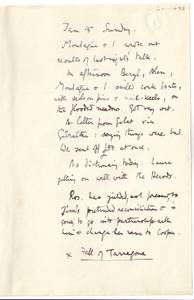 Jan 15 Sunday.
Montagu & I wrote out
results of last night's talk.
In afternoon Beryl, Alan,
Montagu & I sailed cork boats,
with pins & keels, on
the flooded meadow. Got very wet.
A letter from Galet via
Gibraltar: saying things were bad.
We sent off £20 at once.
No dictionary today. Laura
getting on well with the Herods.
Ros. has yielded, not presumably to
Jim's pretended reconciliation & is
going to go into partnership with
him & change her name to Cooper.
x Fall of Tarragona